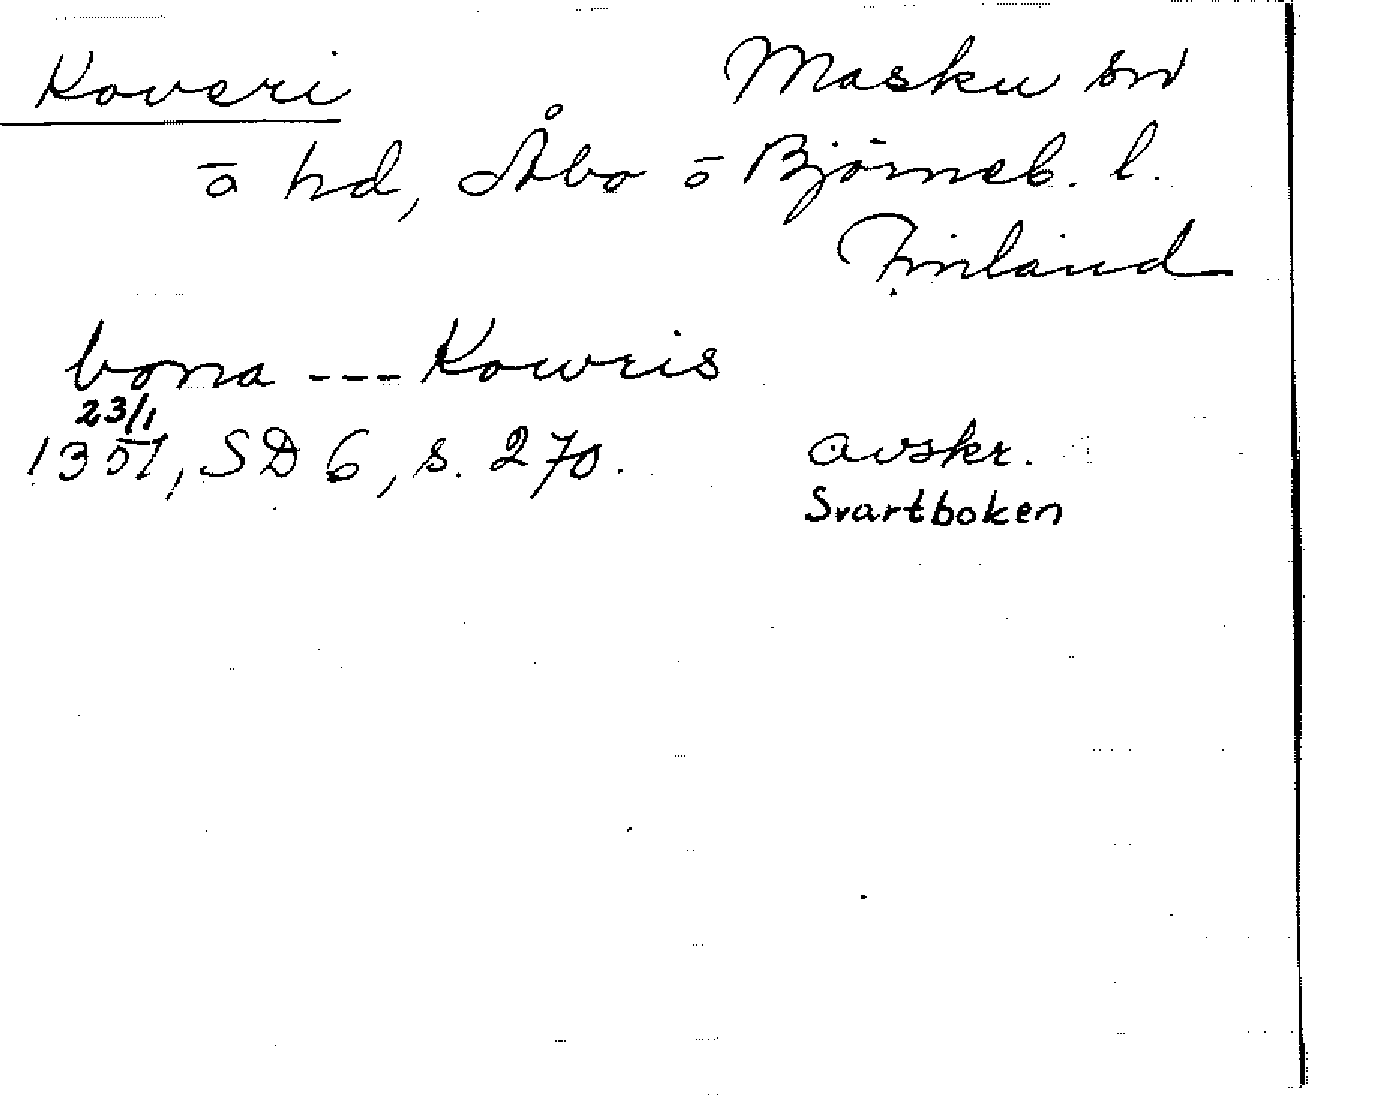 Koveri Masku sn
o hd, Åbo o Björneb. l.
Finland
bona --- Kowris
23/1
1351, SD 6, s. 270. avskr.
Svartboken